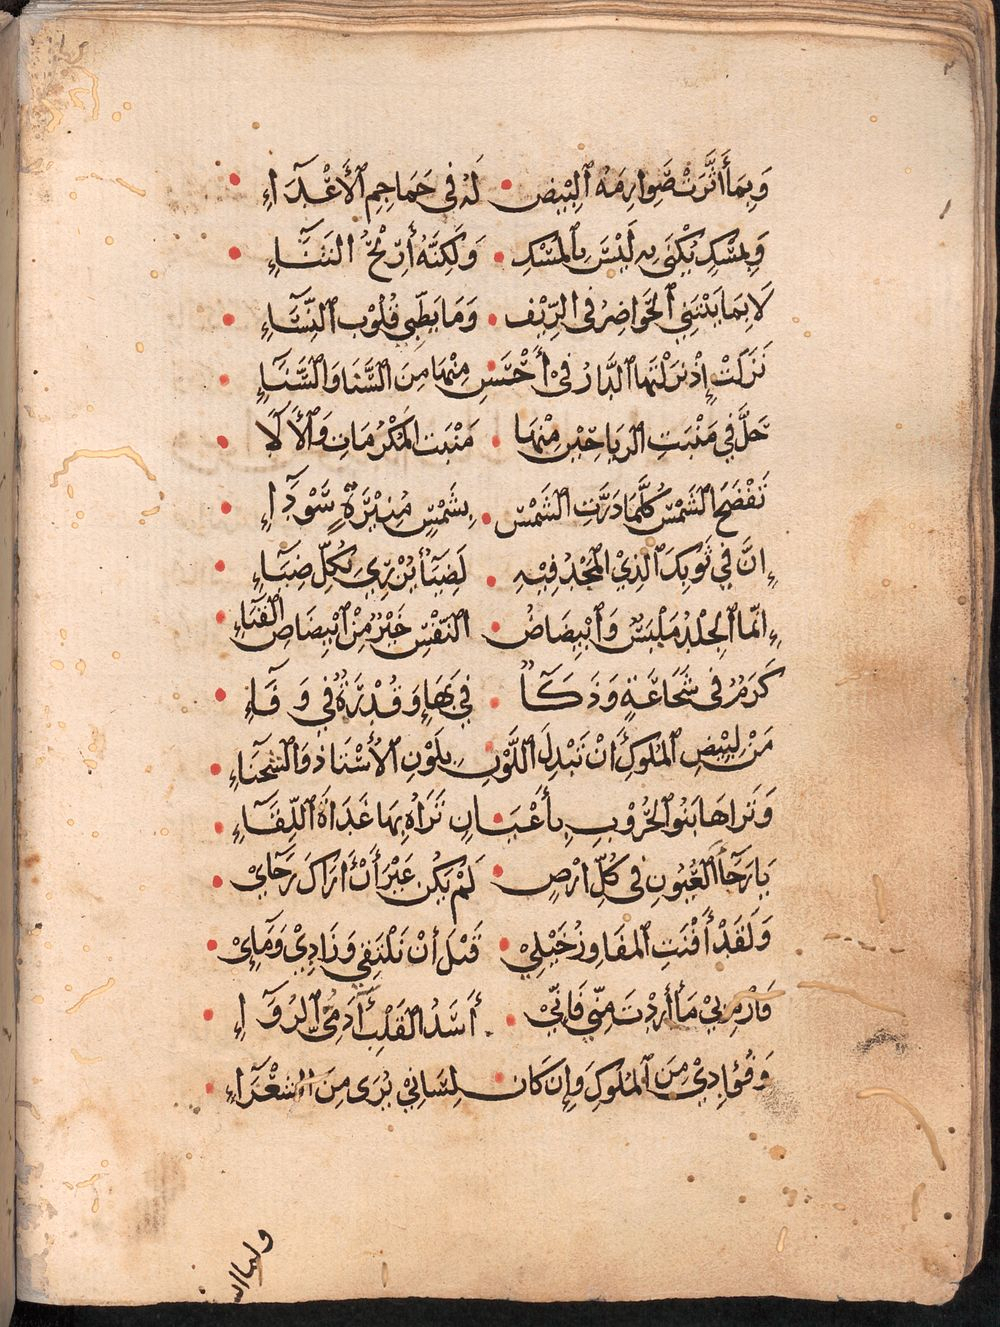 وَبِمَا أَثَّرَتْ صَوَارِمُهُ ٱلْبِيْضُ لَهُ فِي جَمَاجِمِ ٱلْأَعْدَآءِ
وَبِمِسْكٍ يُكْنَى بِهِ لَيْسَ بِالْمِسْكِ وَلَكِنَّهُ أَرِيْجُ الثَنَآءِ
لَا بِمَا يَبْتَنِي ٱلْحَوَاضِرُ فِي الرِّيْفِ وَمَا يَطَّبِي قُلُوْبَ ٱلنِّسَآءِ
نَزَلَتْ إِذْ نَزَلْتَهَا ٱلدَّارُ فِيْ أَحْسَنِ مِنْهَا مِنَ ٱلسَّنَا وَٱلسَّنَآءِ
حَلَّ فِي مَنْبَتِ ٱلرَيَاحِيْنِ مِنْهَا مَنْبَتُ الْمَكْرُمَاتِ وَٱلْأَلَآ
تَفْضَحُ ٱلشَّمْسَ كُلَّمَا ذَرَّتِ الشَمْسُ بِشَمْسٍ مُنِيْرَةٍ سَوْدَآءِ
إِنَّ فِي ثَوْبِكَ ٱلَّذِيْ ٱلْمَجْدُ فِيْهِ لَضِيَآءً يُزْرِيْ بِكُلِّ ضِيَآءِ
إِنَّمَا ٱلْجِلْدُ مَلْبَسٌ وَٱبْيِضَاضُ ٱلنَّفْسِ خَيْرٌ مِنْ ٱبْيِضَاضِ الْقَبَآءِ
كَرَمٌ فِي شَجَاعَةٍ وَذَكَآءٌ فِي بَهَآءٍ وَقُدْرَةٌ فِي وَفَآءِ
مَنْ لِبِيْضِ ٱلْمُلُوكِ أَنْ تُبْدِلَ ٱللَّوْنَ بِلَوْنِ ٱلْأُسْتَاذِ وَٱلسَّحْنَآءِ
وَتَرَاهَا بَنُو ٱلْحُرُوْبِ بِأَعْيَانٍ تَرَاهُ بِهَا غَدَاةَ ٱللِّقَآءِ
يَا رَجَآءَ ٱلْعُيُونِ فِي كُلِّ أَرْضٍ لَمْ يَكُنْ غَيْرَ أَنْ أَرَاكَ رَجَائِيْ
وَلَقَدْ أَفْنَتِ ٱلْمَفَاوِزُ خَيْلِيْ قَبْلَ أَنْ نَلْتَقِي وَزَادِيْ وَمَائِيْ
فَارْمِ بِيْ مَا أَرَدْتَ مِنِّي فَإِنِّيْ أَسَدُ الْقَلْبِ أَدَمِيُّ ٱلرُوَآءِ
وَفُؤَادِيْ مِنَ ٱلْمُلُوكِ وَإِنْ كَانَ لِسَانِيْ يُرَى مِنَ ٱلشُّعَرَآءِ